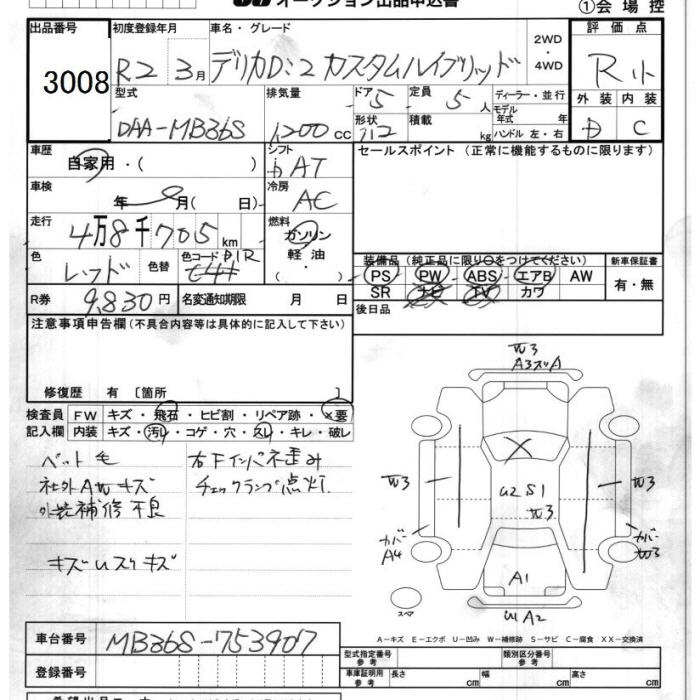 オークション出品申込書
①会場控
出品番号 3008
初度登録年月 R2 3月
車名・グレード デリカD:2 カスタムハイブリッド
2WD・4WD
評価点 R
外装 D 内装 C
型式 DAA-MB36S
排気量 1,200cc
ドア 5 形状
定員 5人 積載 kg
ディーラー・並行
モデル年式 年
ハンドル 左・右
車歴 自家用・( )
シフト AT
セールスポイント (正常に機能するものに限ります)
車検 年 月( 日)
冷房 AC
走行 4万8千705km
燃料 ガソリン 軽油・( )
色 レッド 色替 色コード
装備品(純正品に限り○をつけてください)
新車保証書
PS PW ABS エアB AW 有・無
SR ナビ TV カワ
R券 9,830円 名変通知期限 月 日
後日品
注意事項申告欄(不具合内容等は具体的に記入して下さい)
修復歴 有 [箇所 ]
検査員 FW キズ・飛石・ヒビ割・リペア跡・×要
記入欄 内装 キズ・汚れ・コゲ・穴・スレ・キレ・破レ
ペット毛
社外AWキズ
外装補修不良
キズUスリキズ
右Fインパネ歪み
チェックランプ点灯
W3
A3スリA
X
W3
W3
U2 S1
W3
カバーA4
カバー W3
A1
スペア
U1 A2
A-キズ E-エクボ U-凹み W-補修跡 S-サビ C-腐食 XX-交換済
車台番号 MB36S-753907
登録番号
型式指定番号 参考
類別区分番号 参考
車庫証明用 参考 長さ cm 幅 cm 高さ cm